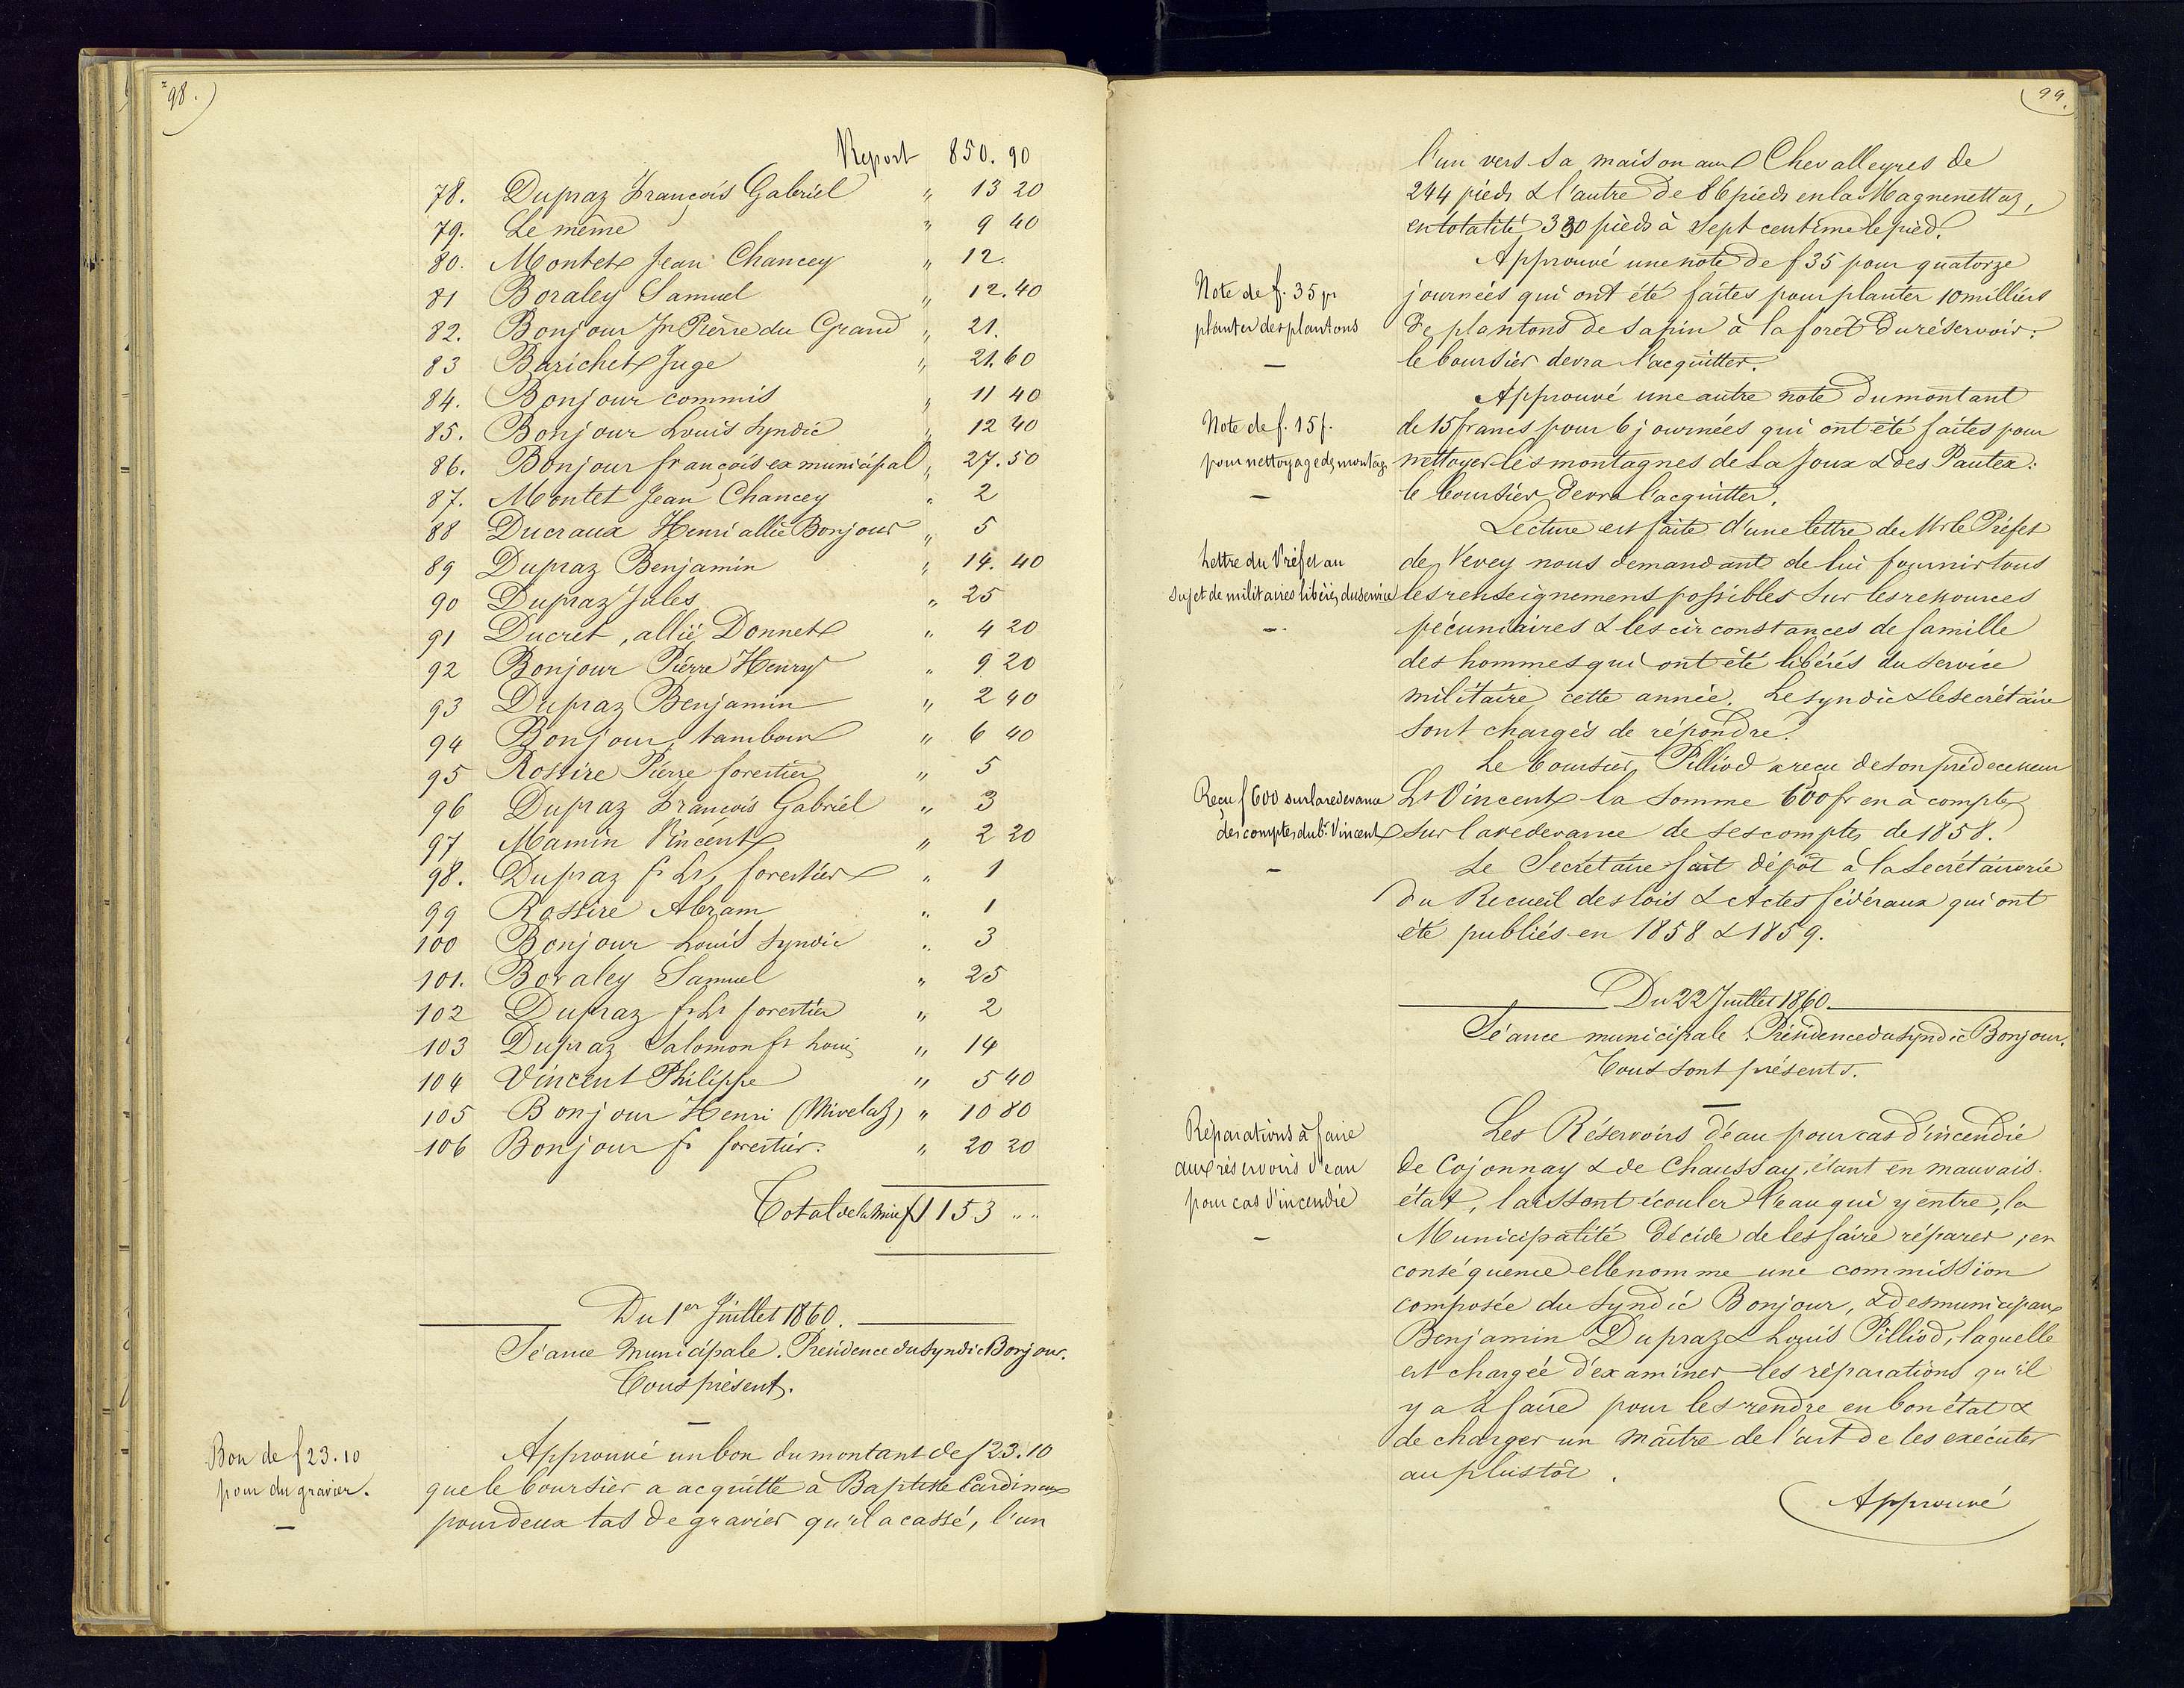 98.
Report 850. 90
78. Dupraz François Gabriel " 13 20
79. Le même " 9 40
80. Montet Jean Chancey " 12.
81 Boraley Samuel " 12.40
82. Bonjour Jn Pierre du Grand " 21.
83 Barichet Juge " 21.60
84. Bonjour commis " 11 40
85. Bonjour Louis Syndic " 12 40
86. Bonjour françois ex municipal " 27.50
87. Montet Jean Chancey " 2
88 Ducraux Henri allié Bonjour " 5
89 Dupraz Benjamin " 14. 40
90 Dupraz Jules " 25
91 Ducret, allié Donnet " 4 20
92 Bonjour Pierre Henry " 9 20
93 Dupraz Benjamin " 2 40
94 Bonjour, tambour " 6 40
95 Rossire Pierre forestier " 5
96 Dupraz François Gabriel " 3
97 Mamin Vincent " 2 20
98. Dupraz fs Ls, forestier " 1
99 Rossire Abram " 1
100 Bonjour Louis Syndic " 3
101. Boraley Samuel " 25
102 Dupraz fs Ls forestier " 2
103 Dupraz Salomon fs Louis " 14
104 Vincent Philippe " 5 40
105 Bonjour Henri (Mivelaz) " 10 80
106 Bonjour fs forestier. " 20 20
Total de la mise f 1153 " "
Du 1er Juillet 1860.
Séance Municipale. Présidence du Syndic Bonjour.
Tous présents.
Bon de f 23.10
pour du gravier.
Approuvé un bon du montant de f 23.10
que le boursier a acquitté à Baptiste Cardinaux
pour deux tas de gravier qu'il a cassé, l'un
99.
l'un vers sa maison aux Chevalleyres de
244 pieds & l'autre de 86 pieds en la Magnenettaz,
en totalité 330 pieds à sept centime le pied.
Note de f. 35 pr
planter des plantons
Approuvé une note de f 35 pour quatorze
journées qui ont été faites pour planter 10 milliers
de plantons de sapin à la forêt du réservoir:
le boursier devra l'acquitter.
Note de f. 15 f.
pour nettoyage des montag.
Approuvé une autre note du montant
de 15 francs pour 6 journées qui ont été faites pour
nettoyer les montagnes de la Joux & des Pautex:
le boursier devra l'acquitter.
Lettre du Préfet au
sujet de militaires libérés du service
Lecture est faite d'une lettre de Mr le Préfet
de Vevey nous demandant de lui fournir tous
les renseignemens possibles sur les ressources
pécuniaires & les circonstances de famille
des hommes qui ont été libérés du service
militaire cette année. Le syndic & le secrétaire
sont chargés de répondre.
Recu f 600 sur la redevance
des comptes du br. Vincent
Le boursier Pilliod a reçu de son prédecesseur
Ls Vincent la somme 600 fr en à compte
sur la redevance de ses comptes de 1858.
Le Secrétaire fait dépôt à la Secrétairerie
du Recueil des lois & Actes fédéraux qui ont
été publiés en 1858 & 1859.
Du 22 Juillet 1860.
Séance municipale. Présidence du Syndic Bonjour.
Tous sont présents.
Réparations à faire
aux réservoirs d'eau
pour cas d'incendie
Les Réservoirs d'eau pour cas d'incendie
de Cojonnay & de Chaussay, étant en mauvais
état, laissent écouler l'eau qui y entre, la
Municipalité décide de les faire réparer, en
conséquence elle nomme une commission
composée du Syndic Bonjour, & des municipaux
Benjamin Dupraz & Louis Pilliod, laquelle
est chargée d'examiner les réparations qu'il
y a à faire pour les rendre en bon état &
de charger un maître de l'art de les exécuter
au plustôt.
Approuvé